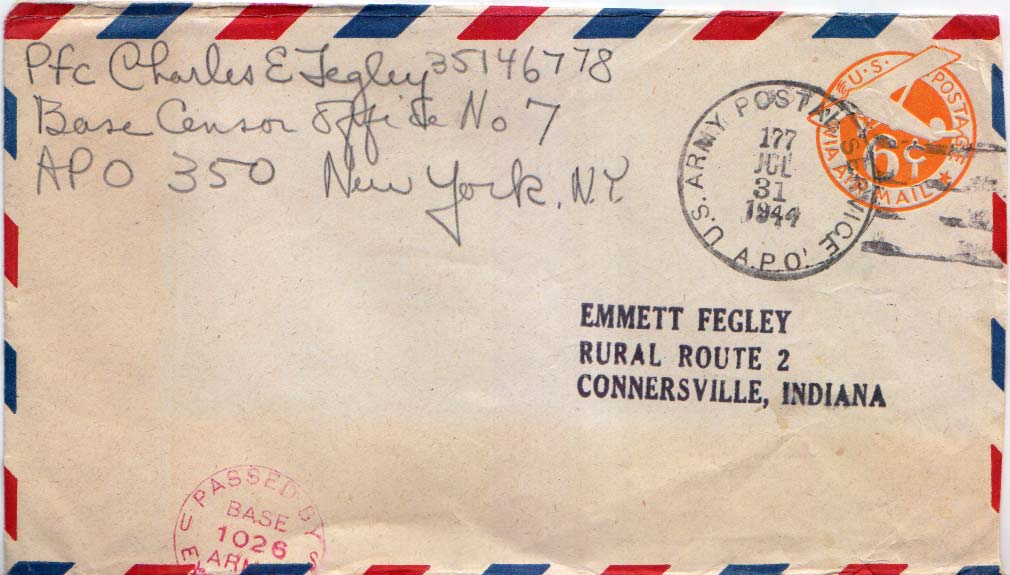 Pfc Charles E Fegley 35146778
Base Censor Office No 7
APO 350 New York, NY
U.S. POSTAGE
6¢
VIA AIR MAIL
U.S. ARMY POSTAL SERVICE
177
JUL
31
1944
A.P.O.
EMMETT FEGLEY
RURAL ROUTE 2
CONNERSVILLE, INDIANA
PASSED BY
BASE
1026